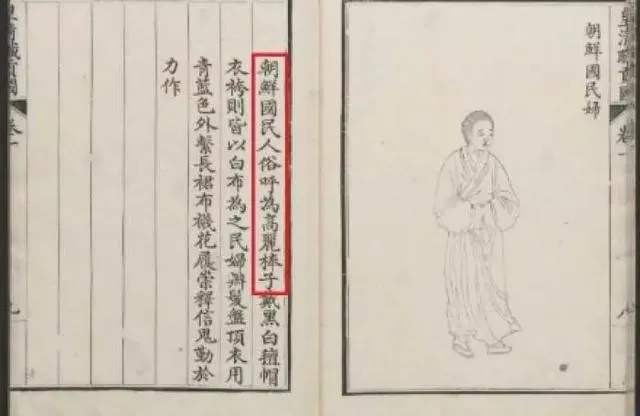 皇清職貢圖
卷一
朝鮮國民婦
朝鮮國民人俗呼為高麗棒子戴黑白氊帽
衣袴則皆以白布為之民婦辮髮盤頂衣用
青藍色外繫長裙布襪花履崇釋信鬼勤於
力作
皇清職貢圖
卷一
九